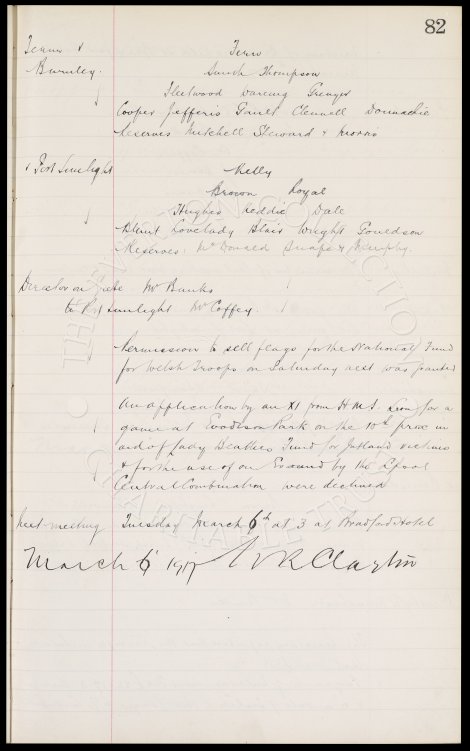 82
Teams v
Fern
Burnley.
Smith Thompson
Fleetwood Wareing Grenyer
Cooper Jefferis Gault Clennell Donnachie
Reserves Mitchell Steward &
v Port Sunlight
Kelly
Brown Royal
Hughes Reddie Dale
Blunt Lovelady Blair Wright Gouldson
Reserves: McDonald & Murphy.
Director on Mr Banks
to Pt Sunlight Mr Coffey.
Permission to sell flags for the National Fund
for Welsh Troops on Saturday next was granted
An application by an XI from H.M.S. Lion for a
game at Goodison Park on the 10th prox in
aid of Lady Beatties Fund for Jutland victims
& for the use of our Ground by the Lpool
Central Combination were declined
Next meeting Tuesday March 6th at 3 at Bradford Hotel
March 6 1917 W R Clayton